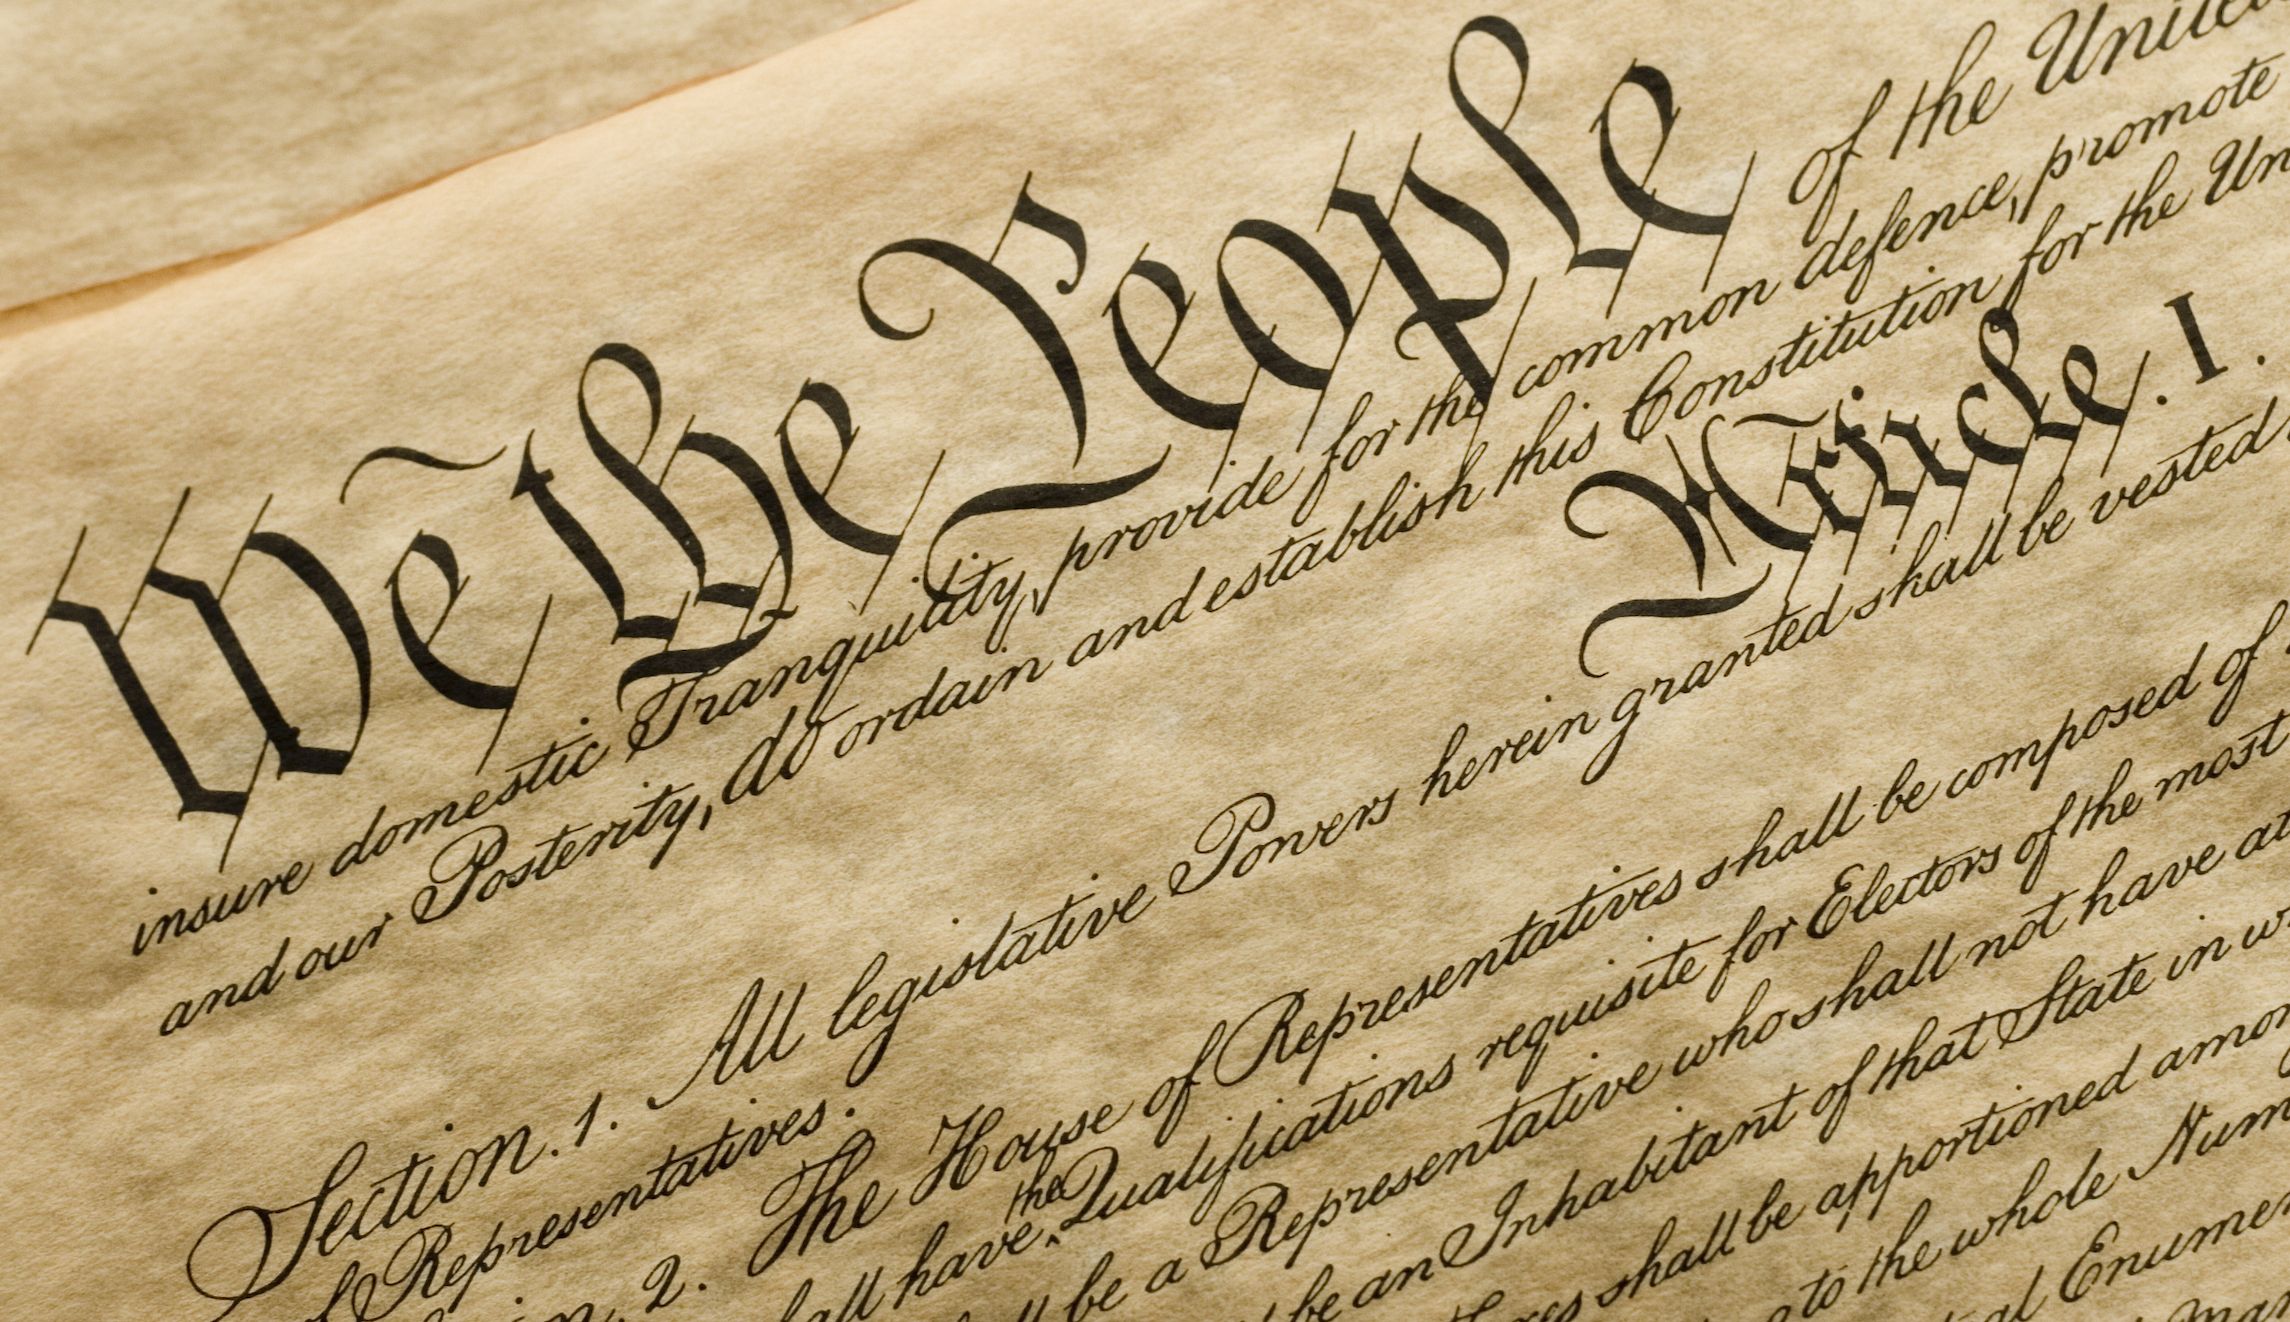 We the People of the United
insure domestic Tranquility, provide for the common defence, promote
and our Posterity, do ordain and establish this Constitution for the Un
Article. I.
Section. 1. All legislative Powers herein granted shall be vested
of Representatives.
2. The House of Representatives shall be composed of
all have the Qualifications requisite for Electors of the most
be a Representative who shall not have at
be an Inhabitant of that State in w
shall be apportioned amon
to the whole Num
Enumer